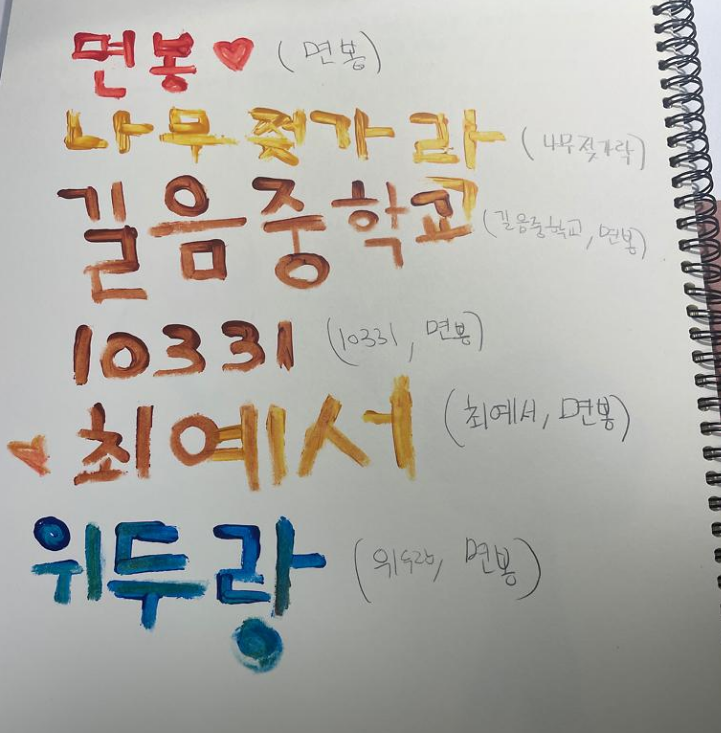 면봉♥ (면봉)
나무젖가라 (나무젖가락)
길음중학교 (길음중학교, 면봉)
10331 (10331, 면봉)
♥최예서 (최예서, 면봉)
위두랑 (위두랑, 면봉)